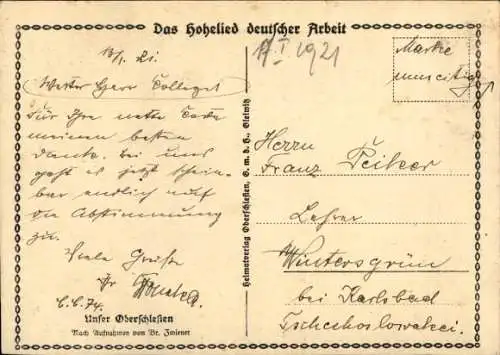 Das Hohelied deutscher Arbeit
13/1. 21.
17 I 1921
Marke
umseitig
Werter Herr Collega!
Für Ihre nette Karte
meinen besten
Dank. Bei uns
geht es jetzt schein-
bar endlich auf
die Abstimmung
zu.
Viele Grüße
Ihr
C.C.74.
Unser Oberschlesien
Nach Aufnahmen von Br. Zwiener
Heimatverlag Oberschlesien, G. m. b. H., Gleiwitz
Herrn
Franz Peiker
Lehrer
Wintersgrün
bei Karlsbad
Tschechoslowakei.